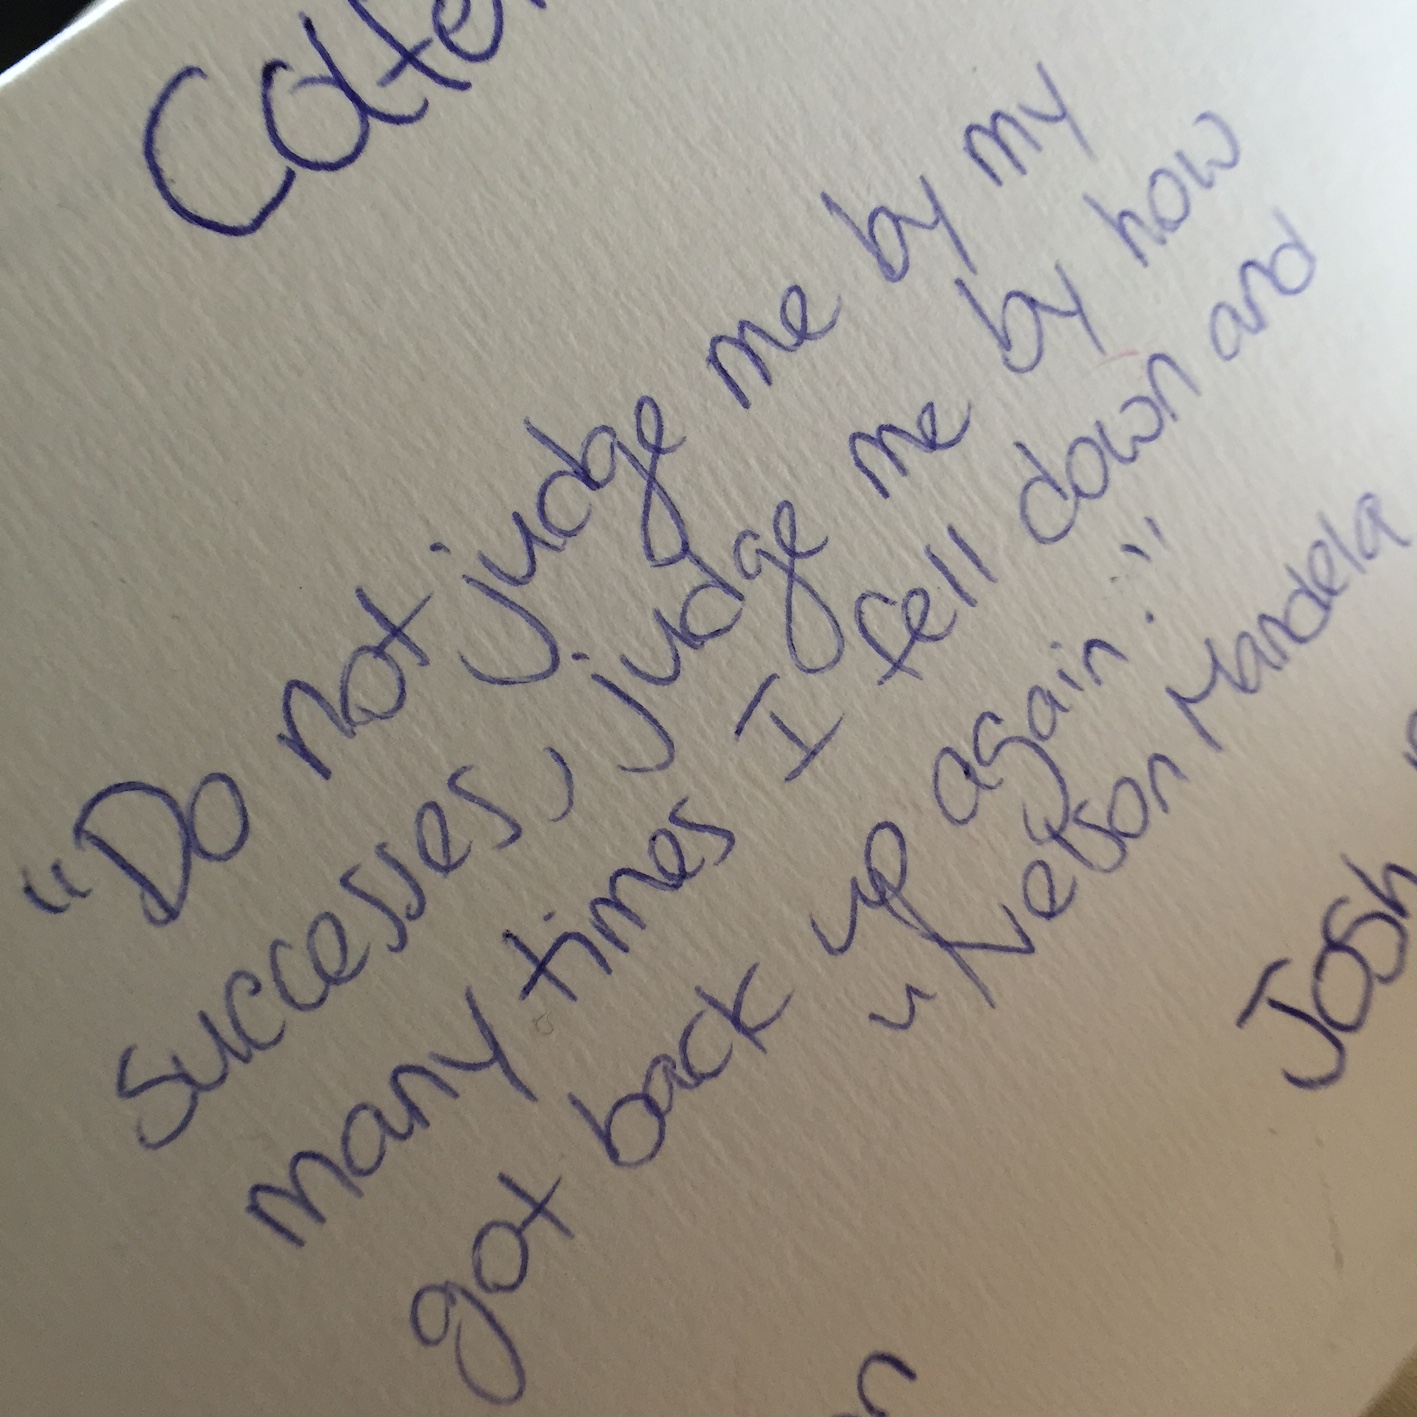 "Do not judge me by my
successes, judge me by how
many times I fell down and
got back up again."
~ Nelson Mandela
Josh